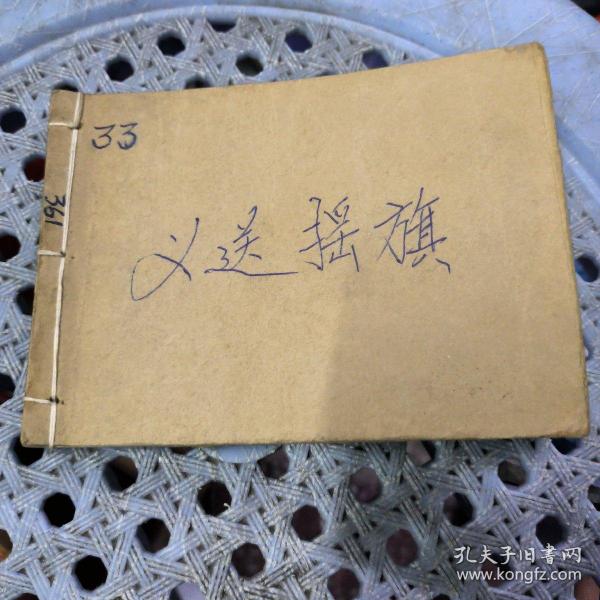 33
361
义送摇旗
孔夫子旧書网
www.kongfz.com